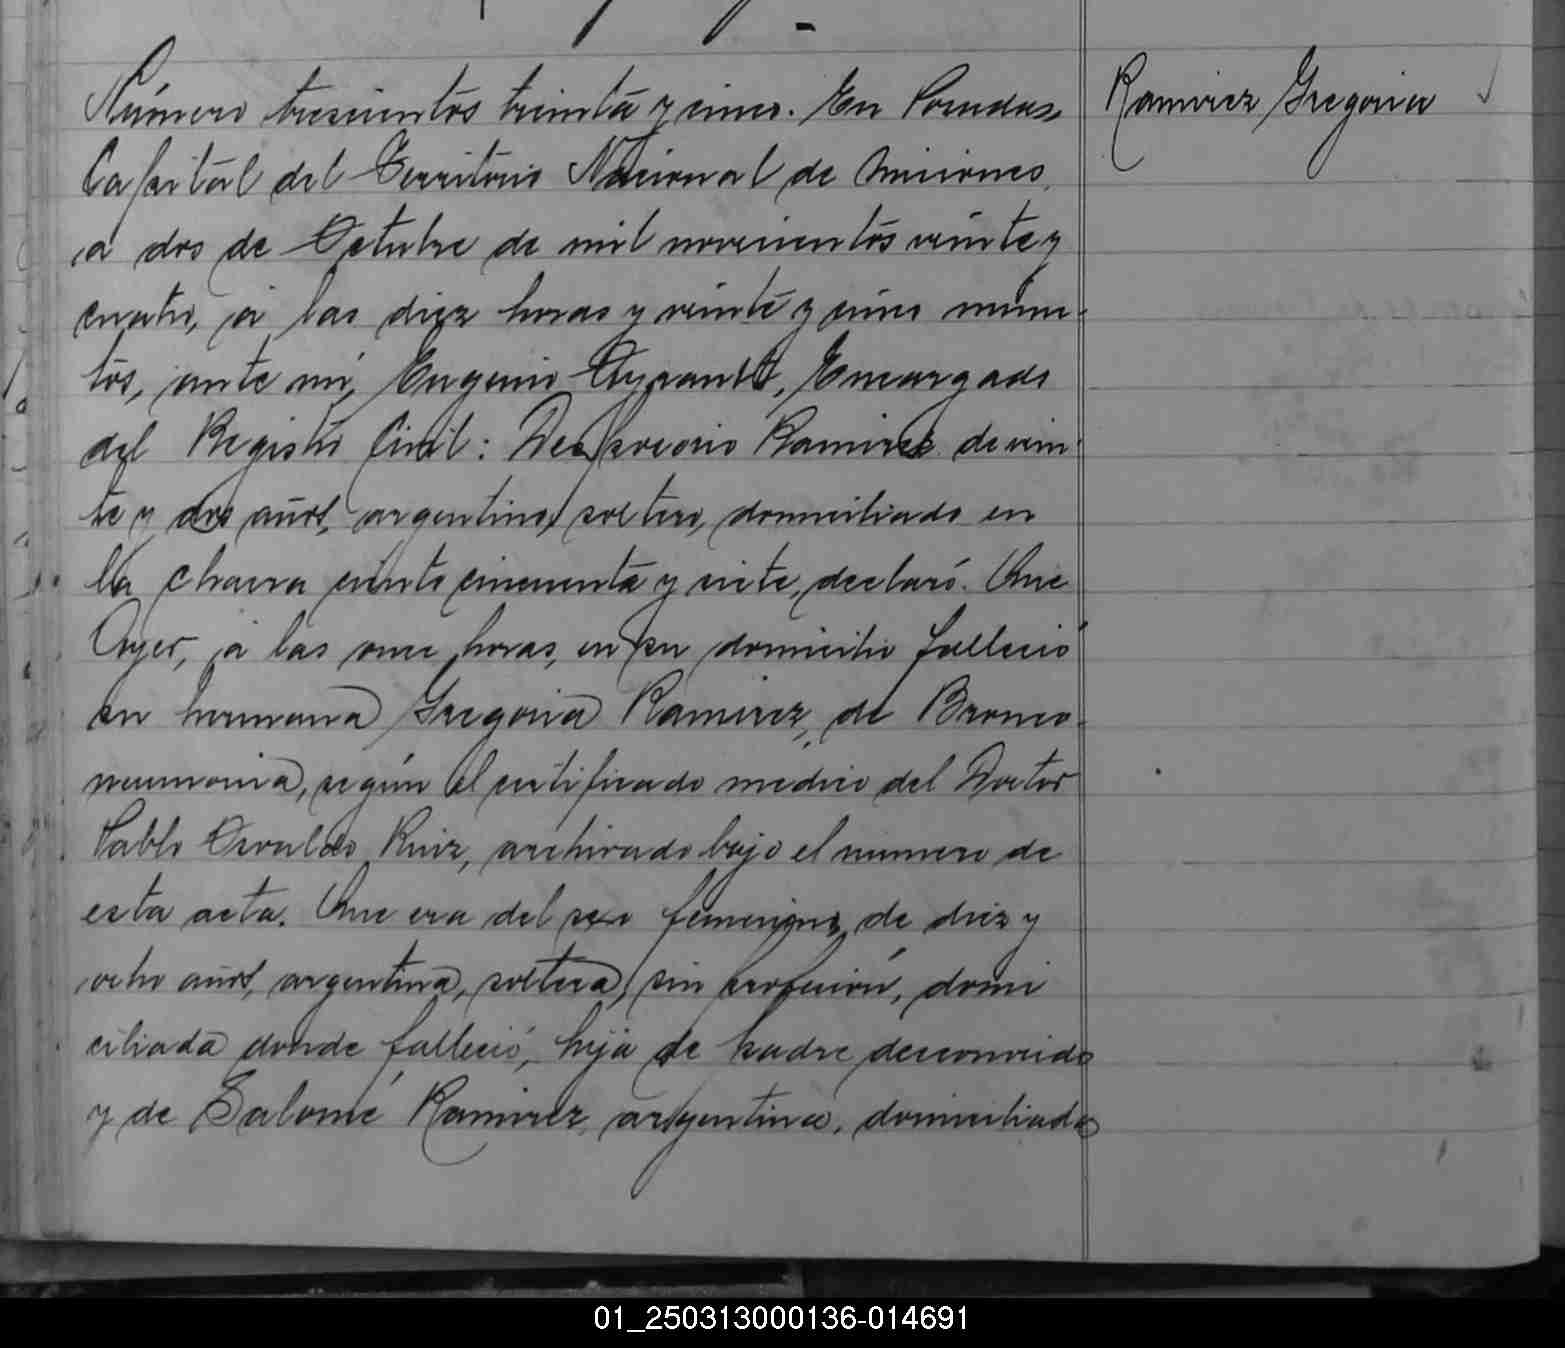 Número trescientos treinta y cinco. En Posadas, Ramirez Gregoria
Capital del Territorio Nacional de Misiones,
a dos de Octubre de mil novecientos veinte y
cuatro, á las diez horas y veinte y cinco minu-
tos, ante mí, Eugenio Ayrault, Encargado
del Registro Civil: Ramirez de vein-
te y dos años, argentino, soltero, domiciliado en
la chacra ciento cincuenta y siete, declaró: Que
Ayer, á las once horas, en su domicilio falleció
su hermana Gregoria Ramirez, de Bronco-
neumonia, según el certificado medico del Doctor
Pablo Osvaldo Ruiz, archivado bajo el numero de
esta acta. Que era del sexo femenino, de diez y
ocho años, argentina, soltera, sin profesión, domi
ciliada donde falleció, hija de padre desconocido
y de Salomé Ramirez, argentina, domiciliada
01_250313000136-014691